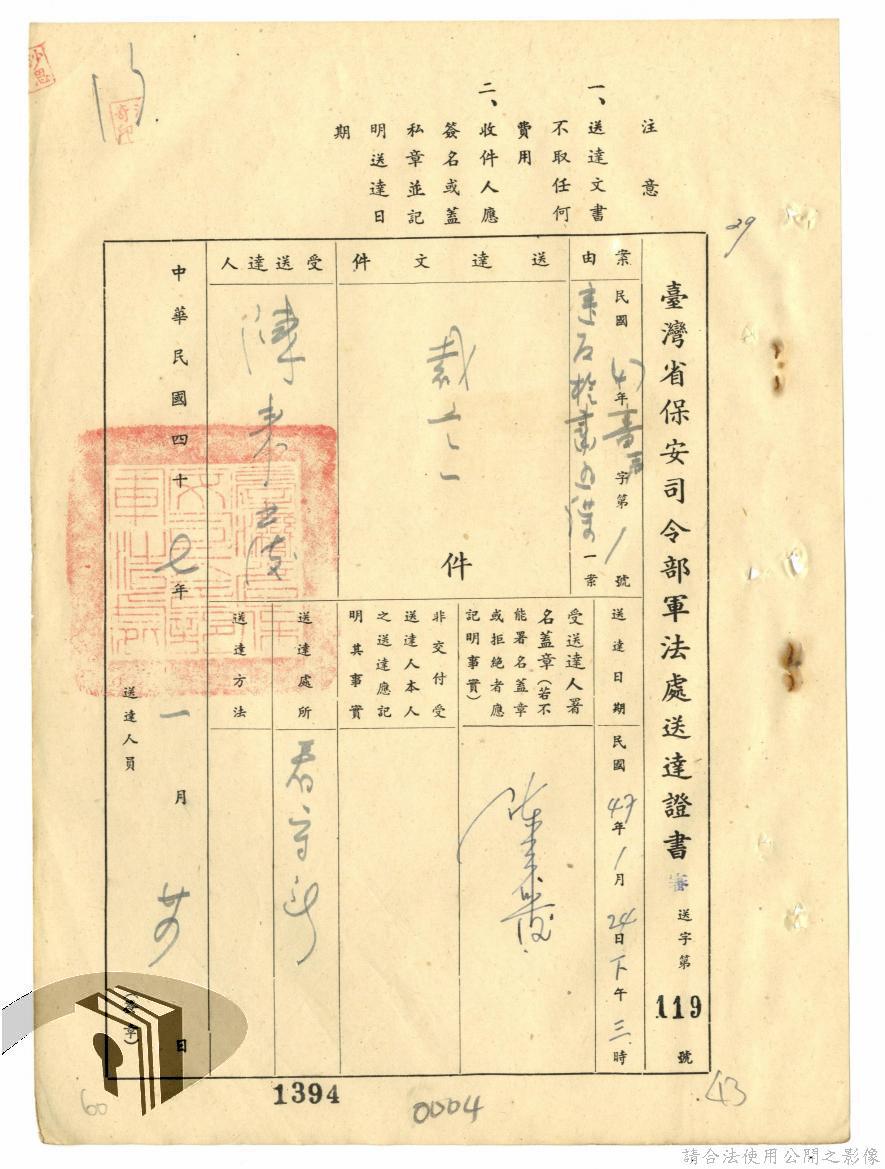 注意
一、送達文書
不取任何
費用
二、收件人應
簽名或蓋
私章並記
明送達日
期
臺灣省保安司令部軍法處送達證書
審
送字第
119
號
案由
民國47年
字第1號
一案
送達日期
民國47年1月24日下午三時
送達文件
件
受送達人署
名蓋章(若不
能署名蓋章
或拒絕者應
記明事實)
非交付受
送達人本人
之送達應記
明其事實
受送達人
送達處所
看守所
送達方法
中華民國四十七年一月廿四日
送達人員
(蓋章)
29
1394
0004
43
60
請合法使用公開之影像